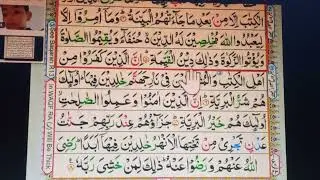 الْكِتٰبَ اِلَّا مِنْۢ بَعْدِ مَا جَآءَتْهُمُ الْبَيِّنَةُ وَمَآ اُمِرُوْٓا اِلَّا
لِيَعْبُدُوا اللّٰهَ مُخْلِصِيْنَ لَهُ الدِّيْنَ حُنَفَآءَ وَيُقِيْمُوا الصَّلٰوةَ
وَيُؤْتُوا الزَّكٰوةَ وَذٰلِكَ دِيْنُ الْقَيِّمَةِ اِنَّ الَّذِيْنَ كَفَرُوْا مِنْ
اَهْلِ الْكِتٰبِ فِيْ نَارِ جَهَنَّمَ خٰلِدِيْنَ فِيْهَا اُولٰٓئِكَ
هُمْ شَرُّ الْبَرِيَّةِ اِنَّ الَّذِيْنَ اٰمَنُوْا وَعَمِلُوا الصّٰلِحٰتِ
اُولٰٓئِكَ هُمْ خَيْرُ الْبَرِيَّةِ جَزَآؤُهُمْ عِنْدَ رَبِّهِمْ جَنّٰتُ
عَدْنٍ تَجْرِيْ مِنْ تَحْتِهَا الْاَنْهٰرُ خٰلِدِيْنَ فِيْهَآ اَبَدًا رَضِيَ
اللّٰهُ عَنْهُمْ وَرَضُوْا عَنْهُ ذٰلِكَ لِمَنْ خَشِيَ رَبَّهٗ
in WAQF RA Will Be Thick